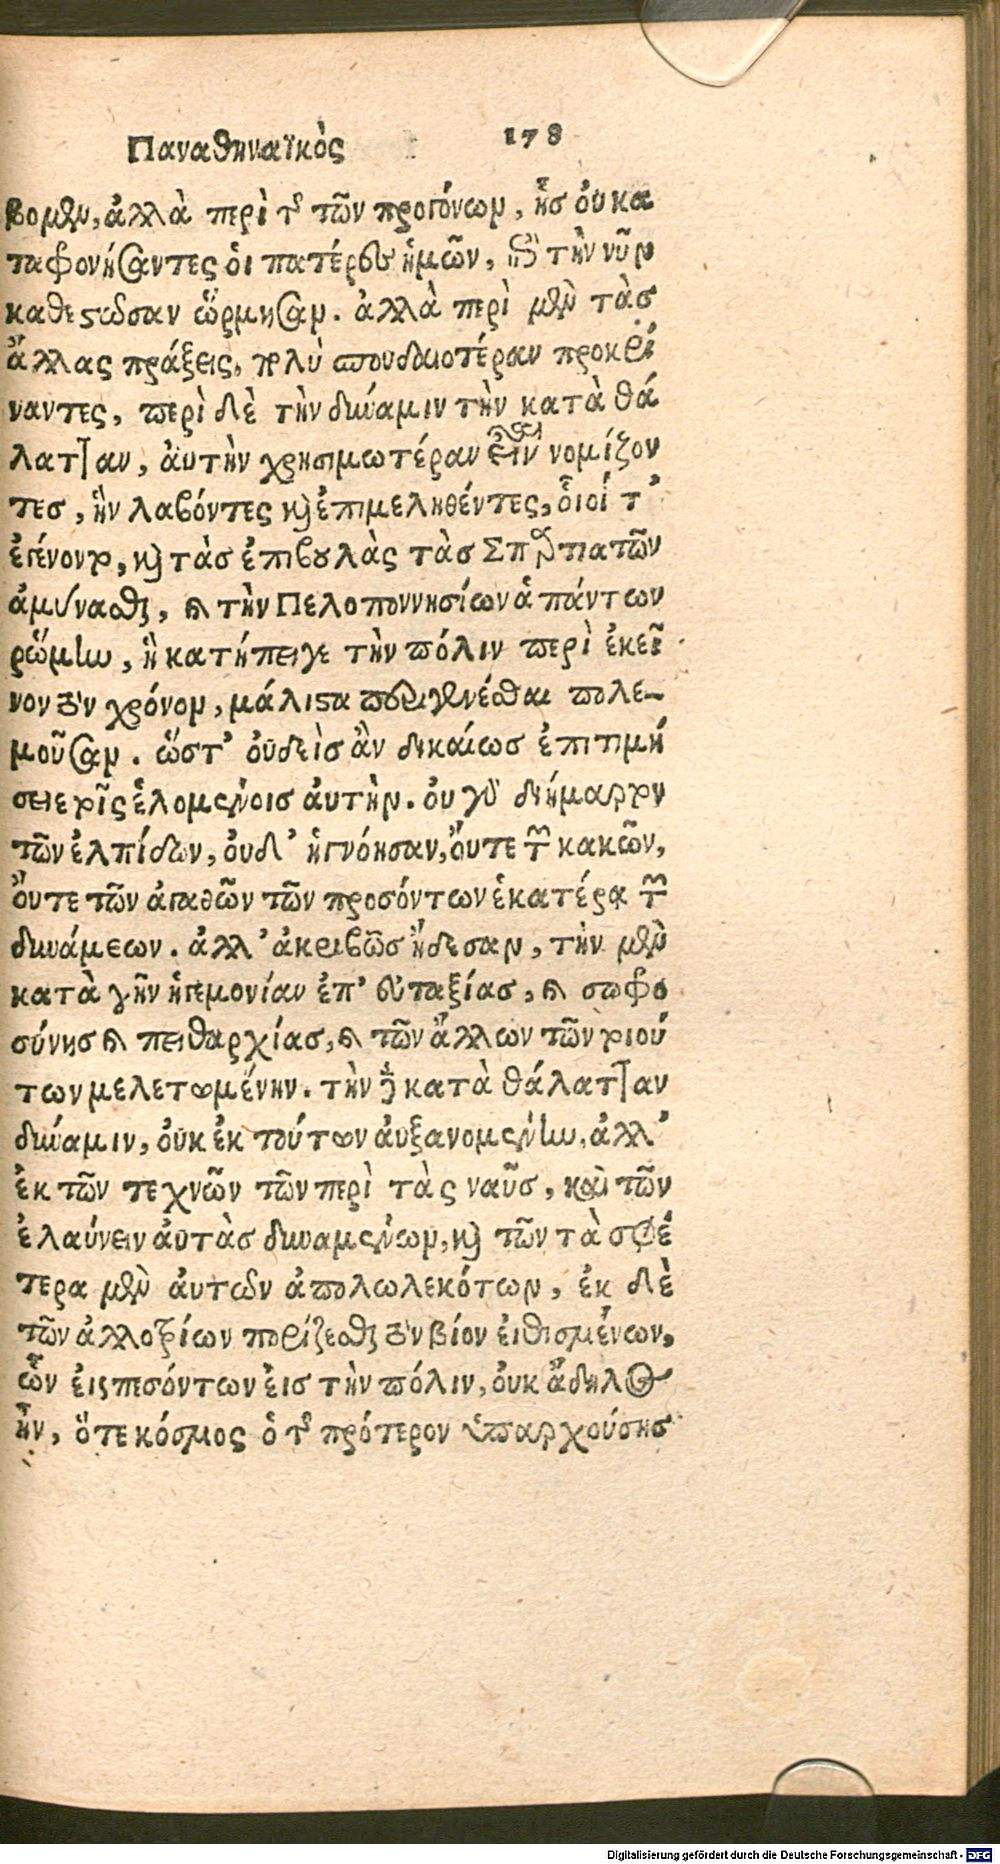 Παναθηναϊκὸς 178
βομεν, ἀλλὰ περὶ τῆς τῶν προγόνων, ἧς οὐ κα
ταφρονήσαντες οἱ πατέρες ἡμῶν, ἐπὶ τὴν νῦν
καθεστῶσαν ὥρμησαν. ἀλλὰ περὶ μὲν τὰς
ἄλλας πράξεις, πολὺ σπουδαιοτέραν προκρί
ναντες, περὶ δὲ τὴν δύναμιν τὴν κατὰ θά
λατταν, αὐτὴν χρησιμωτέραν εἶναι νομίζον
τες, ἣν λαβόντες καὶ ἐπιμεληθέντες, οἷοί τ’
ἐγένοντο, καὶ τὰς ἐπιβουλὰς τὰς Σπαρτιατῶν
ἀμύνασθαι, καὶ τὴν Πελοποννησίων ἁπάντων
ῥώμην, ἣ κατήπειγε τὴν πόλιν περὶ ἐκεῖ
νον τὸν χρόνον, μάλιστα περιγενέσθαι πολε-
μοῦσαν. ὥστ’ οὐδεὶς ἂν δικαίως ἐπιτιμή
σειε τοῖς ἑλομένοις αὐτὴν. οὐ γὰρ διήμαρτον
τῶν ἐλπίδων, οὐδ’ ἠγνόησαν, οὔτε τῶν κακῶν,
οὔτε τῶν ἀγαθῶν τῶν προσόντων ἑκατέρᾳ τῶν
δυνάμεων. ἀλλ’ ἀκριβῶς ᾔδεσαν, τὴν μὲν
κατὰ γῆν ἡγεμονίαν ἐπ’ εὐταξίας, καὶ σωφρο
σύνης καὶ πειθαρχίας, καὶ τῶν ἄλλων τῶν τοιού
των μελετωμένην. τὴν δὲ κατὰ θάλατταν
δύναμιν, οὐκ ἐκ τούτων αὐξανομένην, ἀλλ’
ἐκ τῶν τεχνῶν τῶν περὶ τὰς ναῦς, καὶ τῶν
ἐλαύνειν αὐτὰς δυναμένων, καὶ τῶν τὰ σφέ
τερα μὲν αὐτῶν ἀπολωλεκότων, ἐκ δὲ
τῶν ἀλλοτρίων πορίζεσθαι τὸν βίον εἰθισμένων,
ὧν εἰσπεσόντων εἰς τὴν πόλιν, οὐκ ἄδηλος
ἦν, ὅτε κόσμος ὁ τῆς πρότερον ὑπαρχούσης
Digitalisierung gefördert durch die Deutsche Forschungsgemeinschaft - DFG